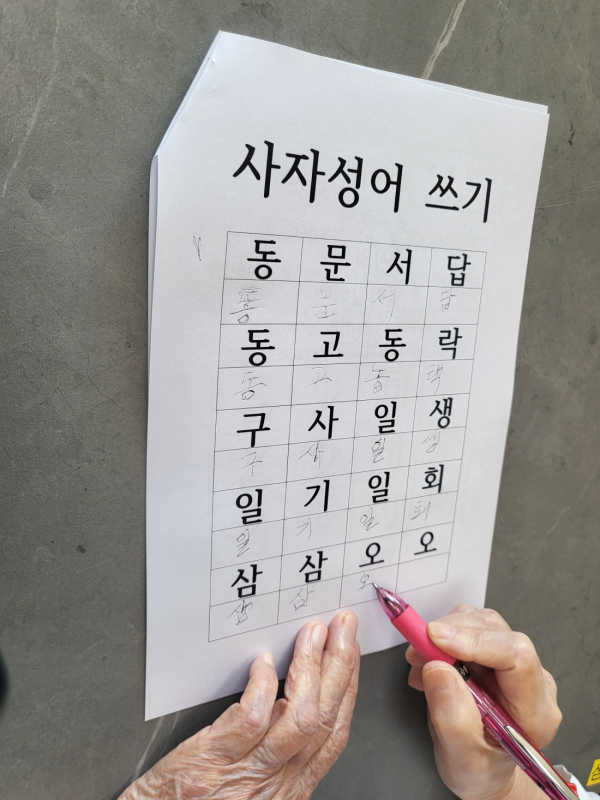 사자성어 쓰기
동 문 서 답
동 문 서 답
동 고 동 락
동 고
구 사 일 생
구 사 일 생
일 기 일 회
일 기 일 회
삼 삼 오 오
삼 삼 오